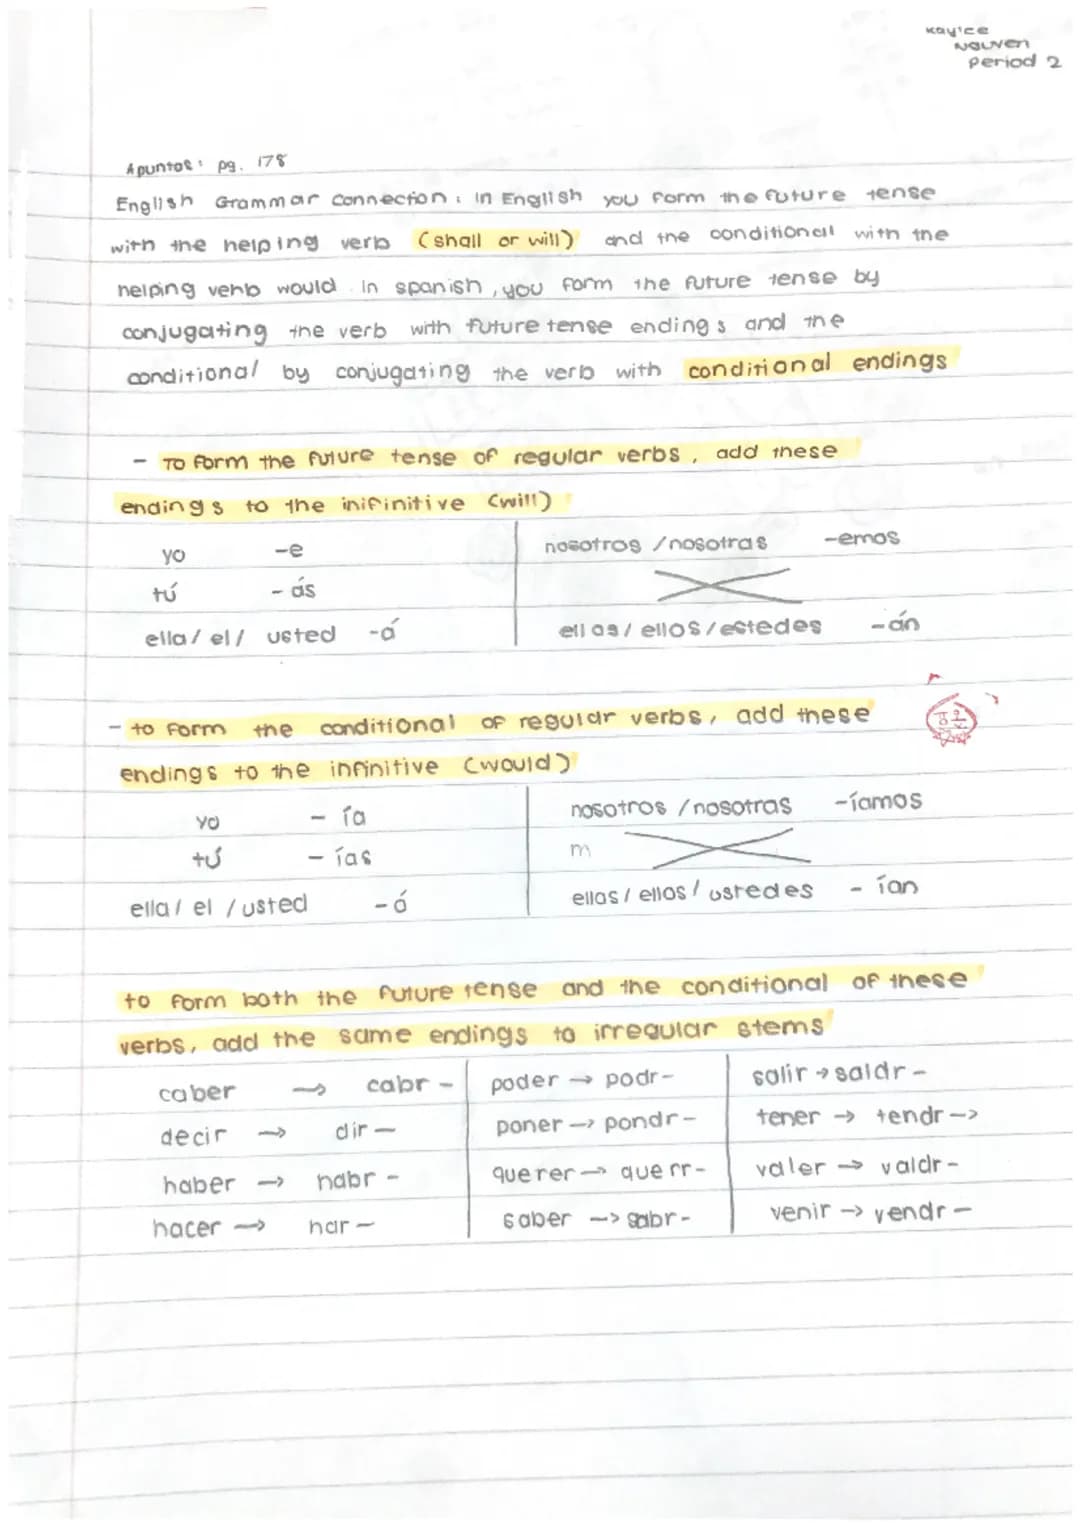 Kaylee
Nguyen
Period 2
Apuntos: pg. 178
English Grammar Connection: In English you form the future tense
with the helping verb (shall or will) and the conditional with the
helping vehb would. In spanish, you form the future tense by
conjugating the verb with future tense endings and the
conditional by conjugating the verb with conditional endings
- To form the future tense of regular verbs, add these
endings to the inifinitive (will)
yo -e nosotros /nosotras -emos
tú - ás
ella/ el/ usted -á ellas/ ellos/estedes -án
- to form the conditional of regular verbs, add these
endings to the infinitive (would)
yo - ía nosotros /nosotras -íamos
tú - ías m
ella/ el /usted - á ellas/ ellos/ ustedes - ían
to form both the future tense and the conditional of these
verbs, add the same endings to irregular stems
caber → cabr - poder → podr- salir → saldr -
decir → dir - poner → pondr - tener → tendr ->
haber → habr - querer → querr - valer → valdr -
hacer → har - saber -> sabr - venir → vendr -